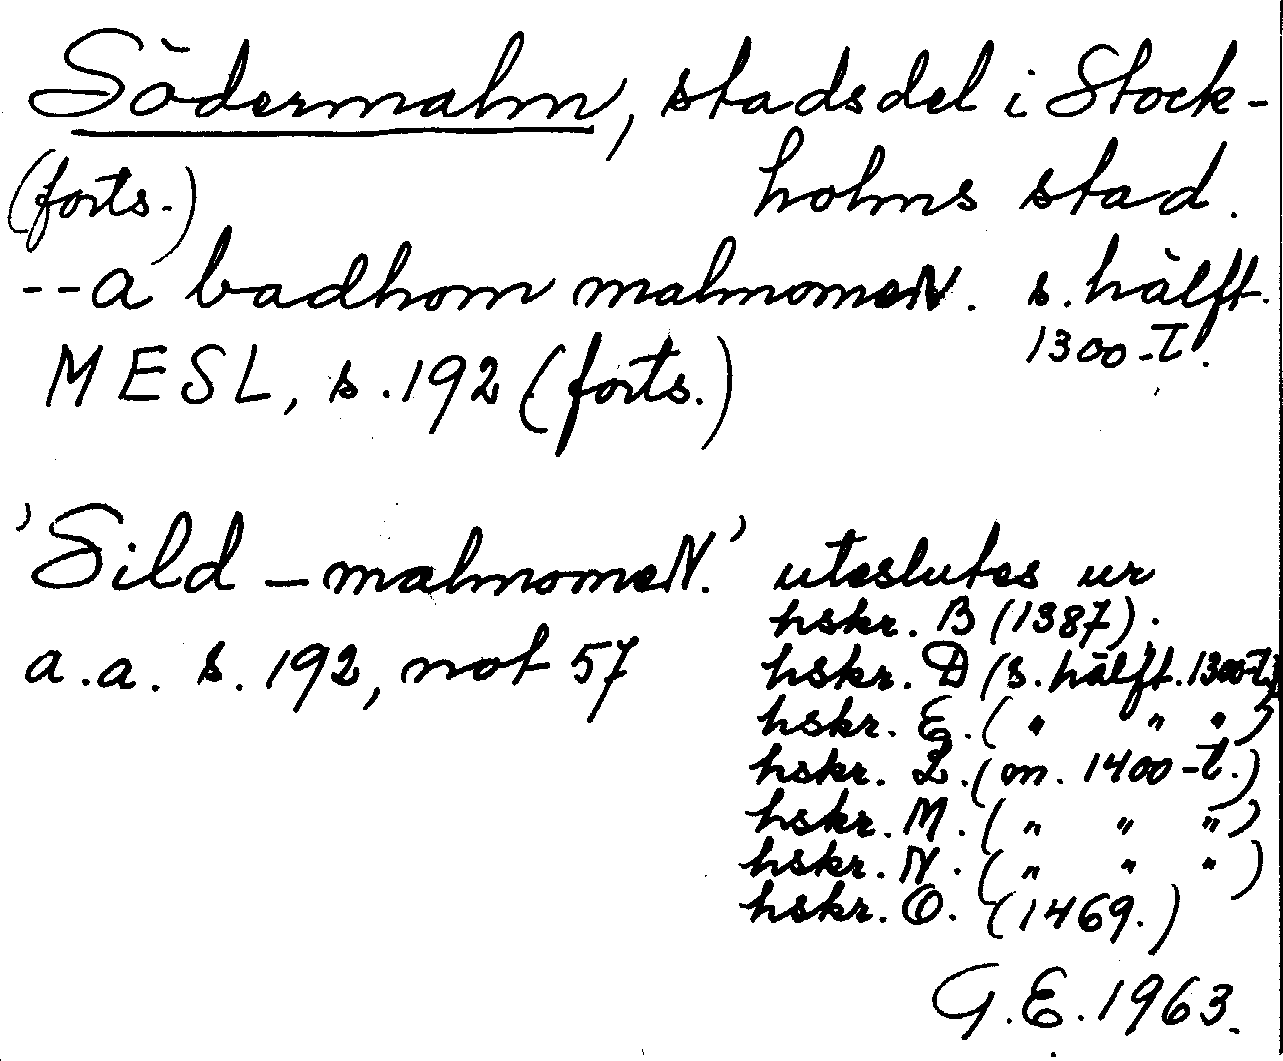 Södermalm, stadsdel i Stock-
(forts.) holms stad.
--a badhom malmomeN. s. hälft.
1300-t.
MESL, s. 192 (forts.)
'Sild-malmomeN.' uteslutes ur
hskr. B (1387).
a.a. s. 192, not 57 hskr. D (s. hälft. 1300-t.)
hskr. E. (" " ")
hskr. L. (m. 1400-t.)
hskr. M. (" " ")
hskr. N. (" " ")
hskr. O. (1469.)
G.E. 1963.